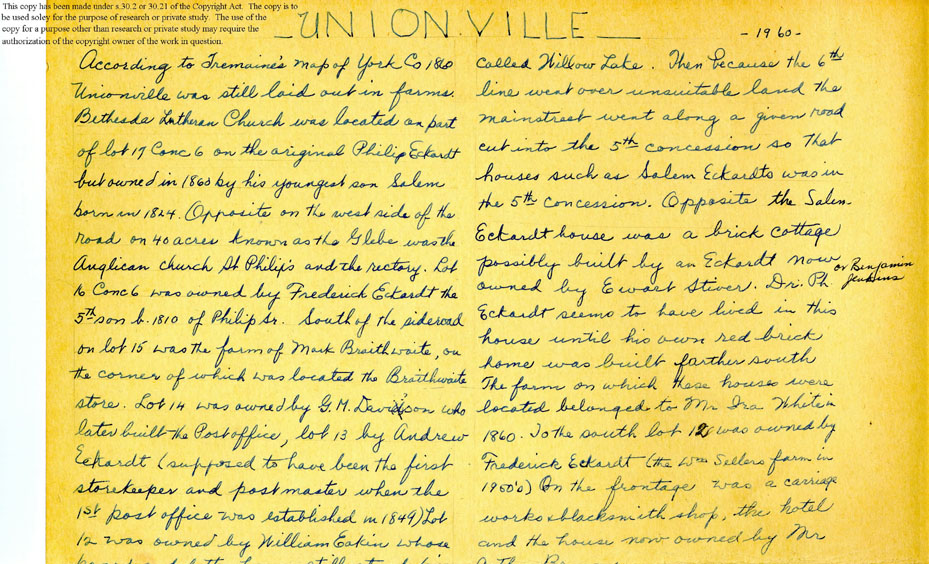 This copy has been made under s.30.2 or 30.21 of the Copyright Act. The copy is to
be used soley for the purpose of research or private study. The use of the
copy for a purpose other than research or private study may require the
authorization of the copyright owner of the work in question.
UNIONVILLE
-1960-
According to Tremaine's map of York Co 1860
Unionville was still laid out in farms.
Bethesda Lutheran Church was located on part
of lot 17 Conc 6 on the original Philip Eckardt
but owned in 1860 by his youngest son Salem
born in 1824. Opposite on the west side of the
road on 40 acres known as the Glebe was the
Anglican church St Philip's and the rectory. Lot
16 Conc 6 was owned by Frederick Eckardt the
5th son b. 1810 of Philip Sr. South of the sideroad
on lot 15 was the farm of Mark Braithwaite, on
the corner of which was located the Braithwaite
store. Lot 14 was owned by G.M. Davison who
later built the Postoffice, lot 13 by Andrew
Eckardt (supposed to have been the first
storekeeper and postmaster when the
1st post office was established in 1849) Lot
12 was owned by William Eakin whose
called Willow Lake. Then because the 6th
line went over unsuitable land the
mainstreet went along a given road
cut into the 5th concession so that
houses such as Salem Eckardts was in
the 5th concession. Opposite the Salem
Eckardt house was a brick cottage
possibly built by an Eckardt now
or Benjamin
Jenkins
owned by Ewart Stiver. Dr. Ph.
Eckardt seems to have lived in this
house until his own red brick
home was built farther south
The farm on which these houses were
located belonged to Mr Ira White in
1860. To the south lot 12 was owned by
Frederick Eckardt (the Wm Sellers farm in
1950's) On the frontage was a carriage
works & blacksmith shop, the hotel
and the house now owned by Mr